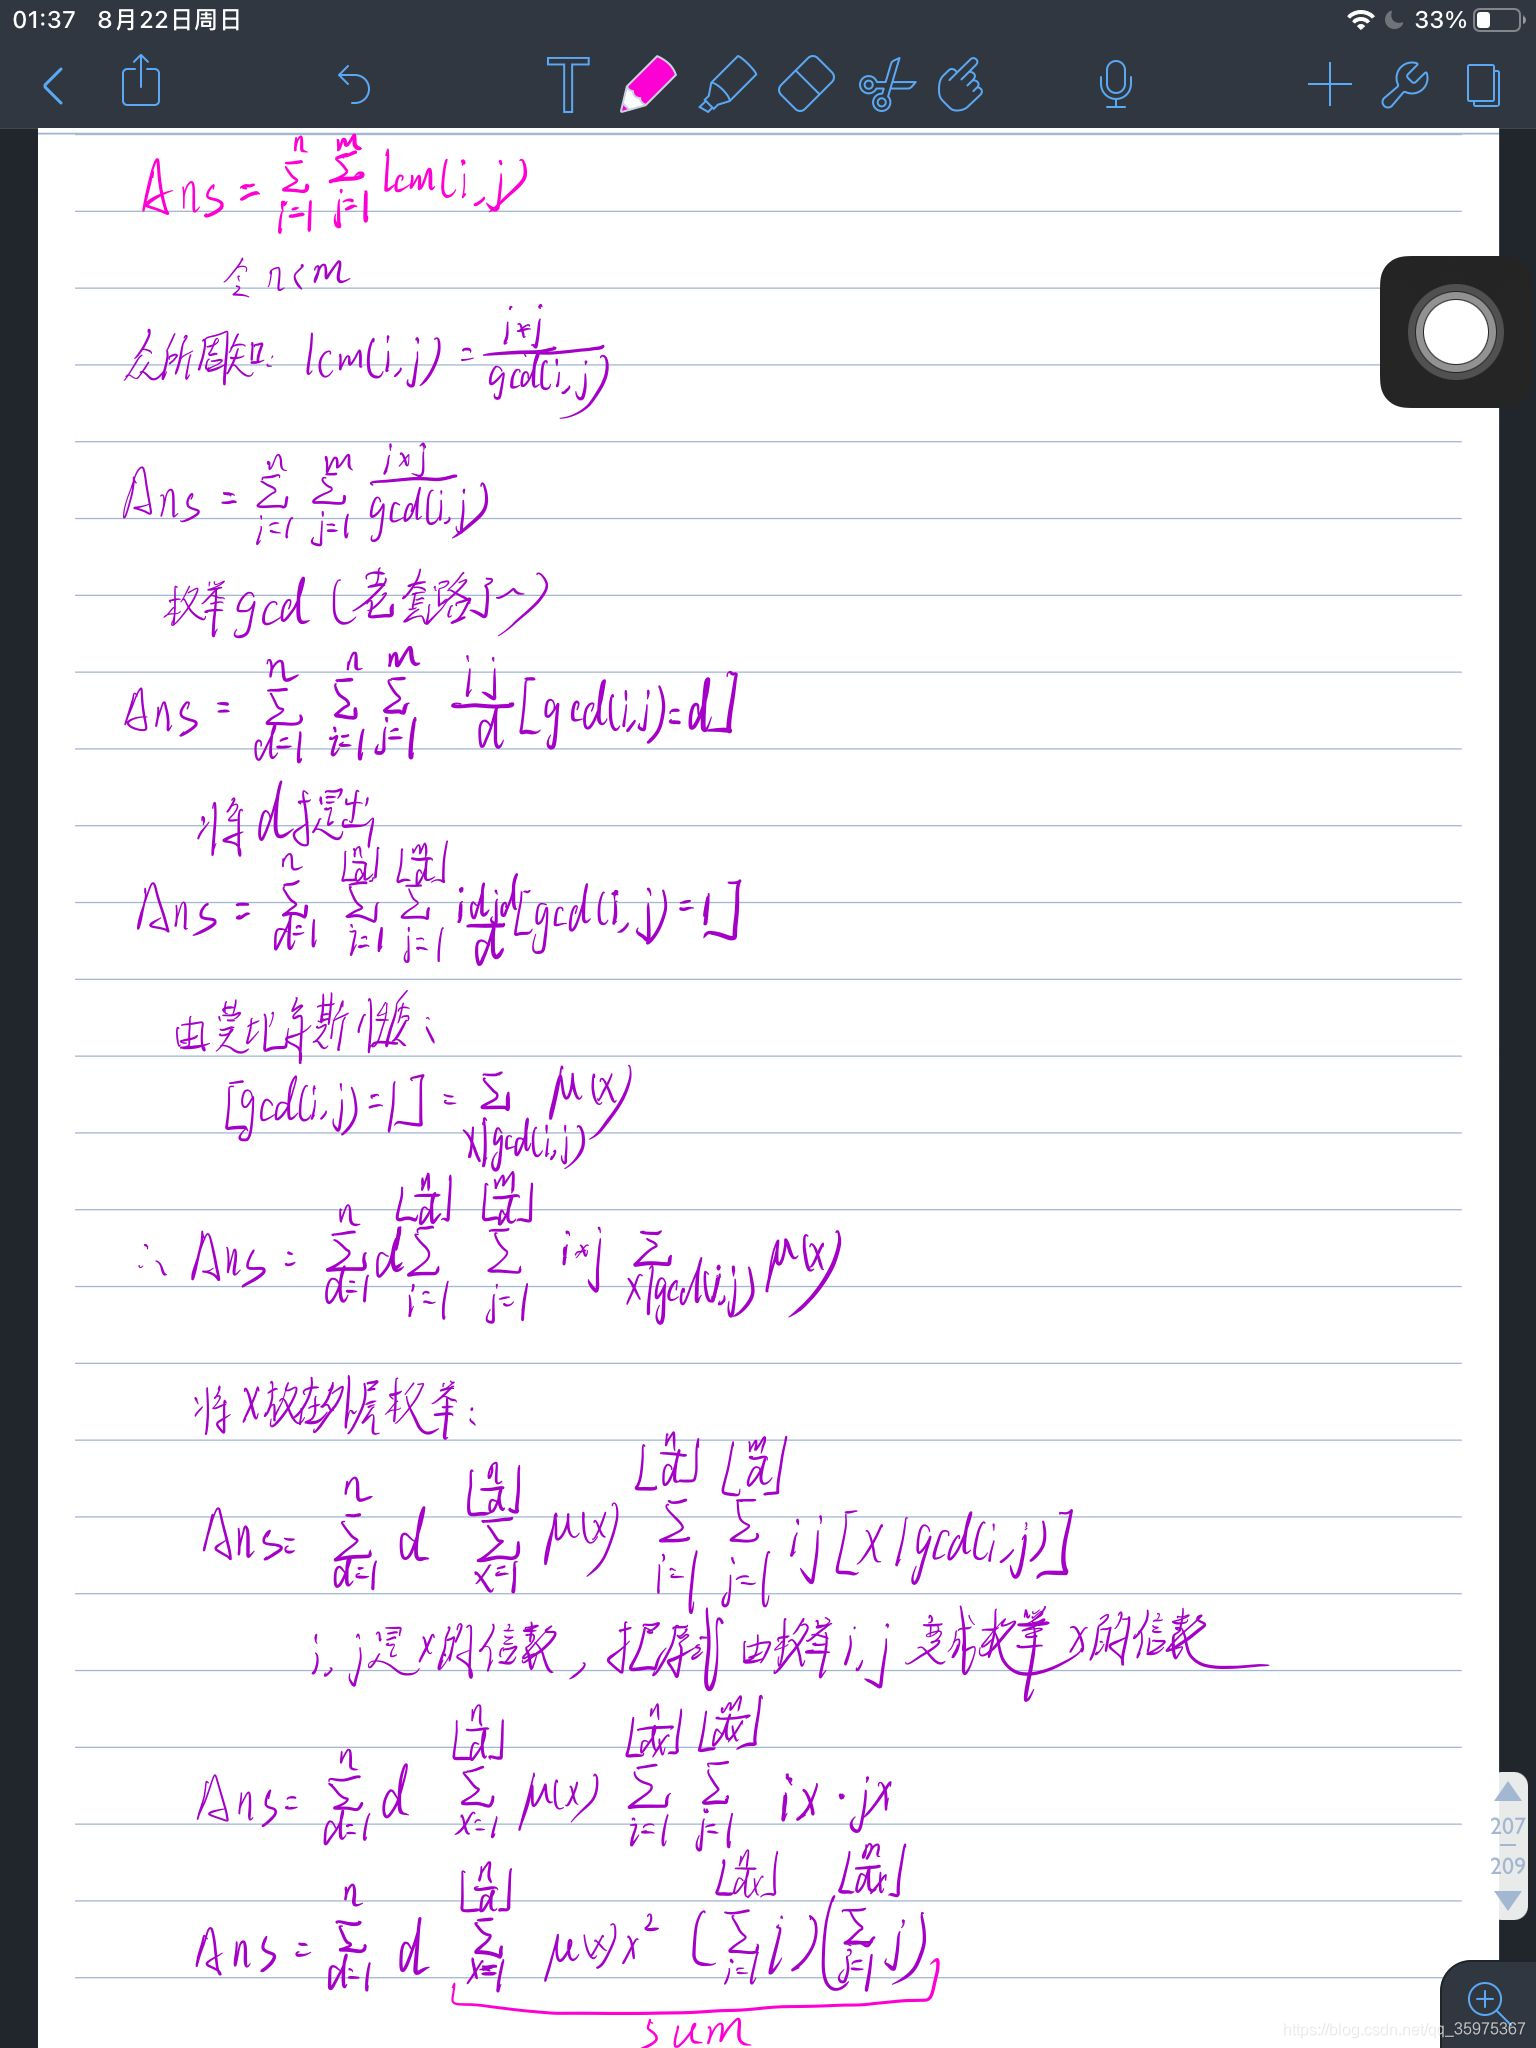 01:37 8月22日周日
33%
Ans = \sum_{i=1}^{n} \sum_{j=1}^{m} lcm(i,j)
令 n<m
众所周知: lcm(i,j) = \frac{i*j}{gcd(i,j)}
Ans = \sum_{i=1}^{n} \sum_{j=1}^{m} \frac{i*j}{gcd(i,j)}
枚举gcd (老套路了~)
Ans = \sum_{d=1}^{n} \sum_{i=1}^{n} \sum_{j=1}^{m} \frac{ij}{d} [gcd(i,j)=d]
将d提出
Ans = \sum_{d=1}^{n} \sum_{i=1}^{⌊\frac{n}{d}⌋} \sum_{j=1}^{⌊\frac{m}{d}⌋} \frac{idjd}{d} [gcd(i,j)=1]
由莫比乌斯性质:
[gcd(i,j)=1] = \sum_{x|gcd(i,j)} μ(x)
∴ Ans = \sum_{d=1}^{n} d \sum_{i=1}^{⌊\frac{n}{d}⌋} \sum_{j=1}^{⌊\frac{m}{d}⌋} i*j \sum_{x|gcd(i,j)} μ(x)
将x放在外层枚举:
Ans = \sum_{d=1}^{n} d \sum_{x=1}^{⌊\frac{n}{d}⌋} μ(x) \sum_{i=1}^{⌊\frac{n}{d}⌋} \sum_{j=1}^{⌊\frac{m}{d}⌋} ij [x|gcd(i,j)]
i,j是x的倍数, 把原式由枚举i,j变成枚举x的倍数
Ans = \sum_{d=1}^{n} d \sum_{x=1}^{⌊\frac{n}{d}⌋} μ(x) \sum_{i=1}^{⌊\frac{n}{dx}⌋} \sum_{j=1}^{⌊\frac{m}{dx}⌋} ix·jx
Ans = \sum_{d=1}^{n} d \sum_{x=1}^{⌊\frac{n}{d}⌋} μ(x)x^2 (\sum_{i=1}^{⌊\frac{n}{dx}⌋} i)(\sum_{j=1}^{⌊\frac{m}{dx}⌋} j)
sum
207
209
https://blog.csdn.net/qq_35975367